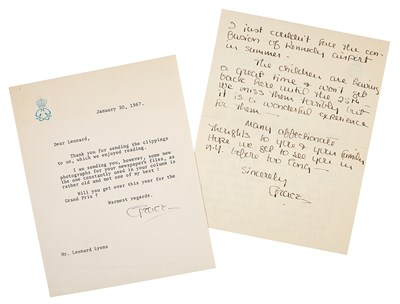 January 30, 1967.
Dear Leonard,
Thank you for sending the clippings
to us, which we enjoyed reading.
I am sending you, however, some new
photographs for your newspapers files, as
the one constantly used in your column is
rather old and not one of my best !
Will you get over this year for the
Grand Prix ?
Warmest regards,
Grace
Mr. Leonard Lyons
I just couldn't face the con-
fusion of Kennedy airport
in summer -
The children are having
a great time & won't get
back here until the 25th -
We miss them terribly but
it is a wonderful experience
for them -
Many affectionate
thoughts to you & your family
Hope we get to see you in
N.Y. before too long -
Sincerely
Grace